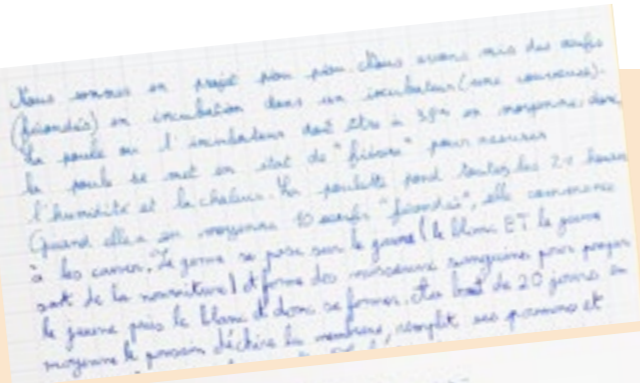 Nous sommes en projet piou piou. Nous avons mis des oeufs
(fécondés) en incubation dans un incubateur (une couveuse).
La poule ou l'incubateur doit être à 38° en moyenne, donc
la poule se met en état de "fièvre" pour mesurer
l'humidité et la chaleur. La poulette pond toutes les 24 heures
Quand elle a en moyenne 10 oeufs "fécondés", elle commence
à les couver. Le germe se pose sur le jaune (le blanc ET le jaune
sont de la nourriture) et forme des vaisseaux sanguins pour
le jaune puis le blanc et donc se former. Au bout de 20 jours en
moyenne le poussin déchire la membrane, remplit ses poumons et